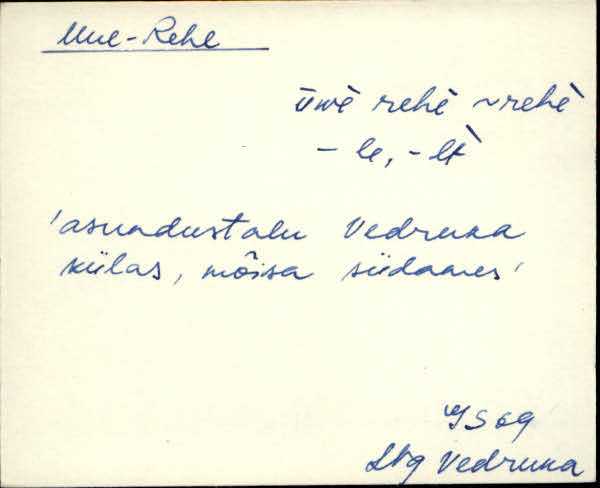 Uue-Rehe
ūwè rehè ~rehè
- le, - lt̀
'asundustalu Vedruka
külas, mõisa südames'
S 69
Lbg Vedruka